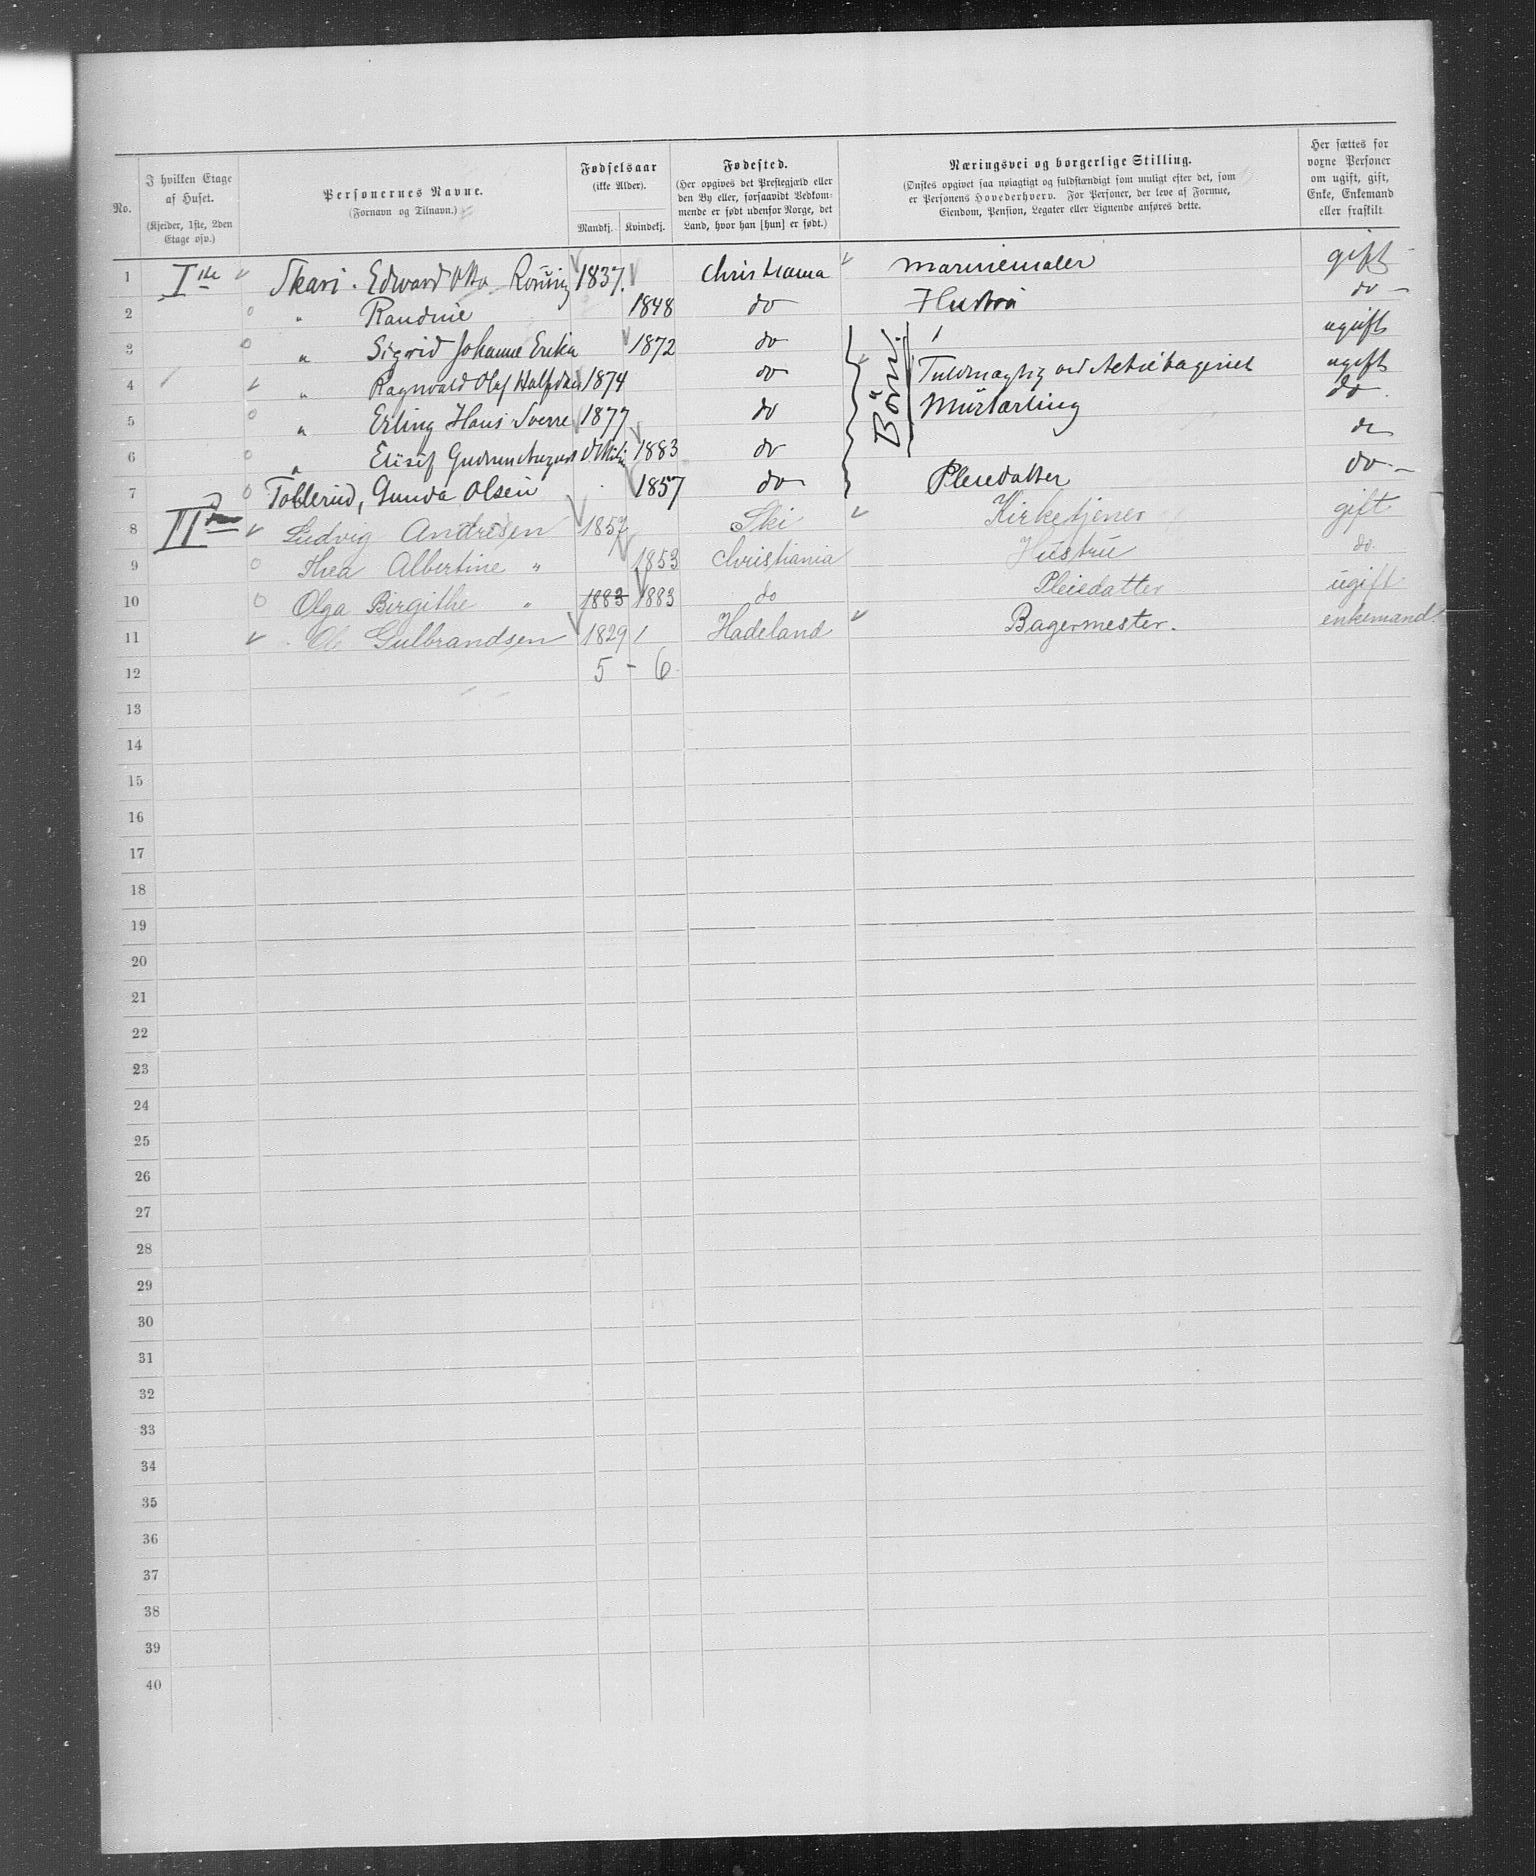 No.
I hvilken Etage af Huset.
(Kjelder, 1ste, 2den Etage osv.)
Personernes Navne.
(Fornavn og Tilnavn.)
Fødselsaar
(ikke Alder).
Mandkj. Kvindekj.
Fødested.
(Her opgives det Prestegjæld eller
den By eller, forsaavidt Vedkom-
mende er født udenfor Norge, det
Land, hvor han [hun] er født.)
Næringsvei og borgerlige Stilling.
(Ønskes opgivet saa nøiagtigt og fuldstændigt som muligt efter det, som
er Personens Hovederhverv. For Personer, der leve af Formue,
Eiendom, Pension, Legater eller Lignende anføres dette.
Her sættes for
voxne Personer
om ugift, gift,
Enke, Enkemand
eller fraskilt
1 Iste Skari. Edward Otto 1837. Christiania Marinemaler gift
2 " Randine 1848 do Hustru do
3 " Sigrid Johanne Erika 1872 do Børn. ugift
4 " Ragnvald Olaf Halfdan 1874 do Fuldmægtig ved Actiebageriet ugift
5 " Erling Hans Sverre 1877 do Murlærling do
6 " Elisif Gudrun 1883 do do
7 Tollerud, Gunda Olsen 1857 do Pleiedatter do
8 II Ludvig Andresen 1857 Ski Kirketjener gift
9 Thea Albertine " 1853 Christiania Hustru do
10 Olga Birgithe " 1883 1883 do Pleiedatter ugift
11 Gulbrandsen 1829 Hadeland Bagermester. enkemand
12 5 - 6
13
14
15
16
17
18
19
20
21
22
23
24
25
26
27
28
29
30
31
32
33
34
35
36
37
38
39
40